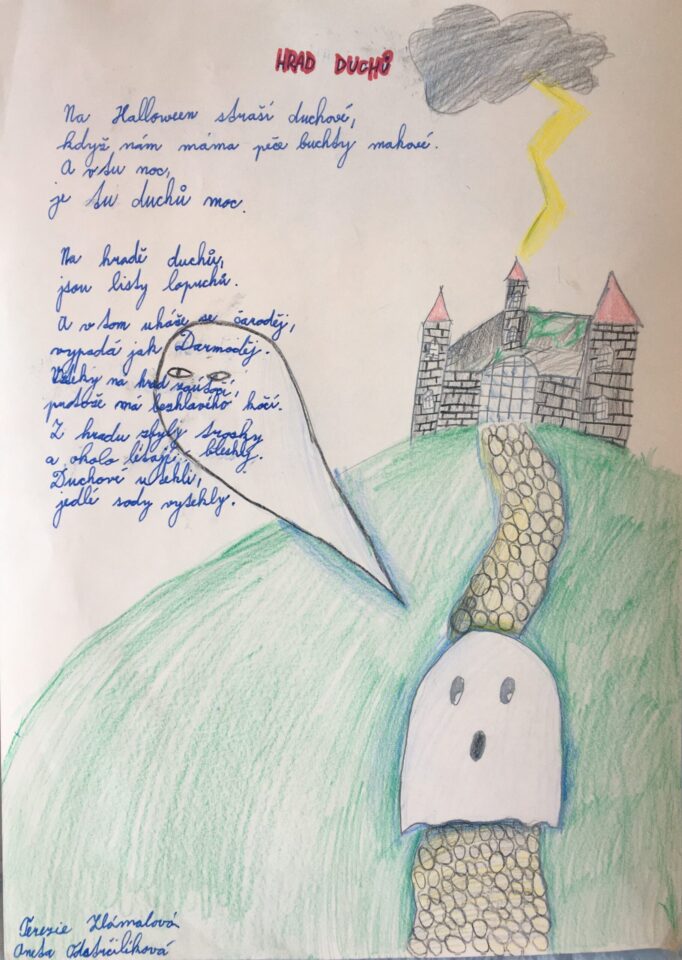 HRAD DUCHŮ
Na Halloween straší duchové,
když nám máma peče buchty makové.
A v tu noc,
je tu duchů moc.
Na hradě duchův,
jsou listy lopuchů.
A v tom uháše se čaroděj,
vypadá jak Darmoděj.
Vždeky na hrad zaútočí,
protože má bezhlavého kočí.
Z hradu zbyly trosky
a okolo lítají blechy.
Duchové utekli,
jedlé sody vysekly.
Terezie Zlámalová
Aneta Odstrčilíková